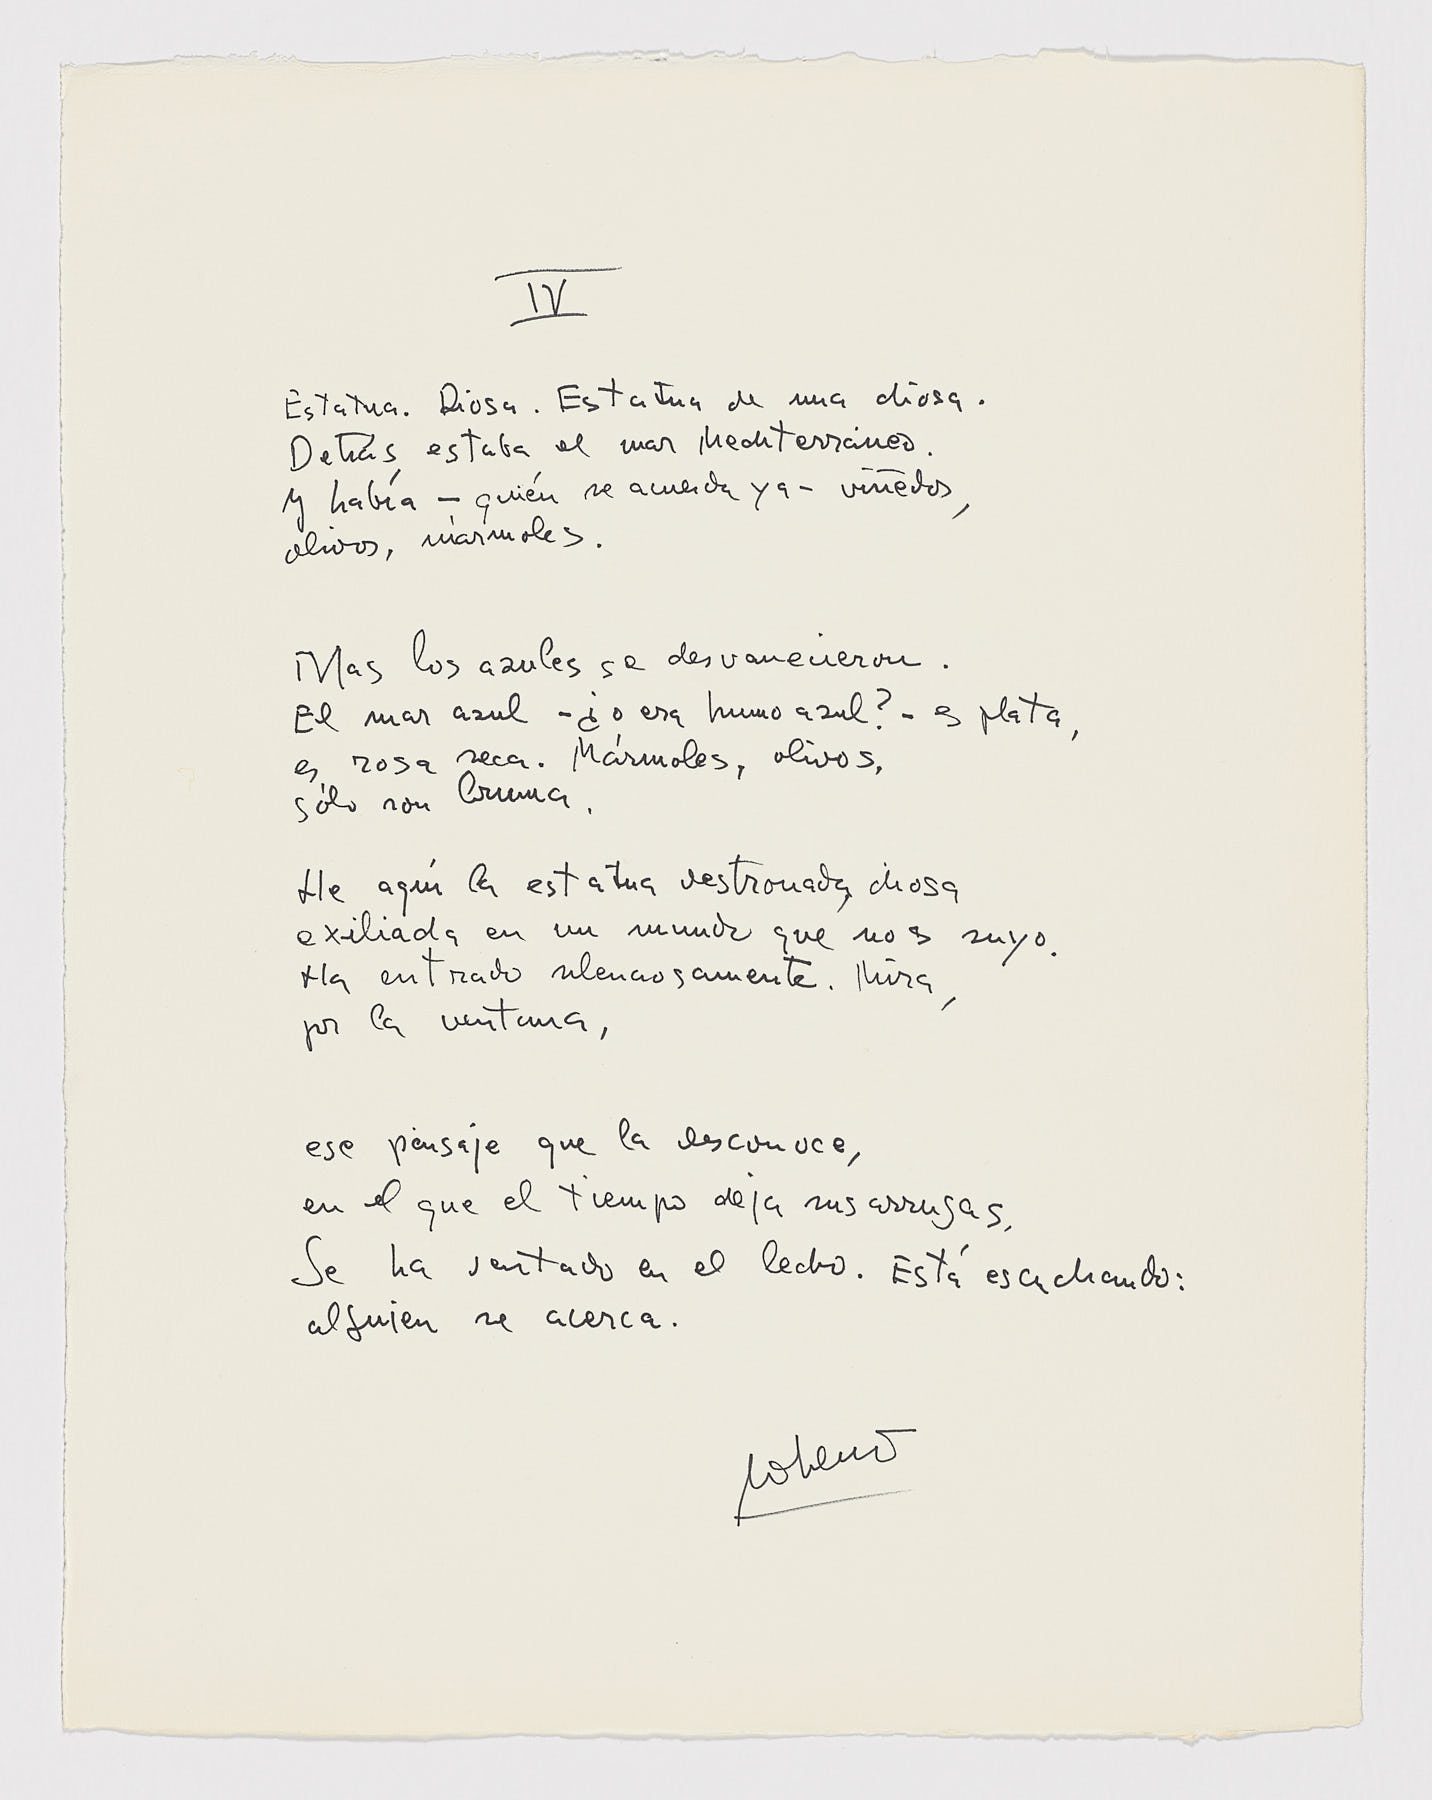 IV
Estatua. Diosa. Estatua de una diosa.
Detrás estaba el mar Mediterráneo.
Y había - quién se acuerda ya - viñedos,
olivos, mármoles.
Mas los azules se desvanecieron.
El mar azul - ¿o era humo azul? - es plata,
es rosa seca. Mármoles, olivos,
sólo son bruma.
He aquí la estatua destronada, diosa
exiliada en un mundo que no es suyo.
Ha entrado silenciosamente. Mira,
por la ventana,
ese paisaje que la desconoce,
en el que el tiempo deja sus arrugas.
Se ha sentado en el lecho. Está escuchando:
alguien se acerca.